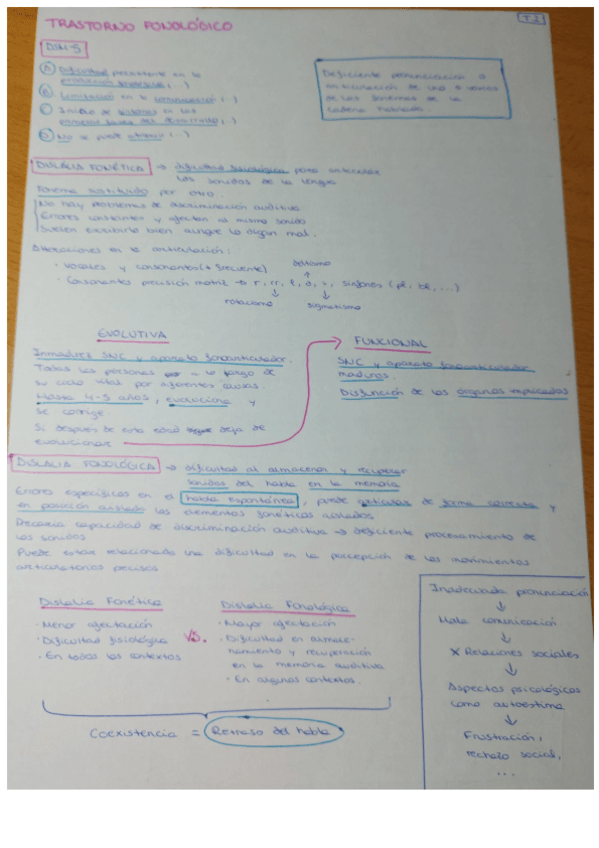 TRASTORNO FONOLÓGICO
T.2
DSM-5
A Dificultad persistente en la
producción fonológica (...)
B Limitación en la comunicación (...)
C Inicio de síntomas en las
primeras fases del desarrollo (...)
D No se puede atribuir (...)
Deficiente pronunciación o
articulación de uno o varios
de los fonemas de la
cadena hablada.
DISLALIA FONÉTICA → dificultad fisiológica para articular
los sonidos de la lengua
Fonema sustituido por otro
No hay problemas de discriminación auditiva
Errores constantes y afectan al mismo sonido
Suelen escribirlo bien aunque lo digan mal.
Alteraciones en la articulación:
· Vocales y consonantes (+ frecuente) deltismo
· Consonantes precisión motriz → r, rr, l, d, s, sinfones (pl, bl, ...)
rotacismo sigmatismo
EVOLUTIVA
Inmadurez SNC y aparato fonoarticulador.
Todas las personas a lo largo de
su ciclo vital por diferentes causas.
Hasta 4-5 años, evoluciona y
se corrige.
Si después de esta edad deja de
evolucionar
FUNCIONAL
SNC y aparato fonoarticulador
maduros.
Disfunción de los órganos implicados
DISLALIA FONOLÓGICA → dificultad al almacenar y recuperar
sonidos del habla en la memoria
Errores específicos en el habla espontánea, puede articular de forma correcta y
en posición aislada los elementos fonéticos aislados
Precaria capacidad de discriminación auditiva → deficiente procesamiento de
los sonidos
Puede estar relacionada una dificultad en la percepción de los movimientos
articulatorios precisos
Dislalia Fonética
· Menor afectación
· Dificultad fisiológica
· En todos los contextos
VS.
Dislalia Fonológica
· Mayor afectación
· Dificultad en almace-
namiento y recuperación
en la memoria auditiva
· En algunos contextos.
Coexistencia = Retraso del habla
Inadecuada pronunciación
↓
Mala comunicación
↓
X Relaciones sociales
↓
Aspectos psicológicos
como autoestima
↓
Frustración,
rechazo social,
...